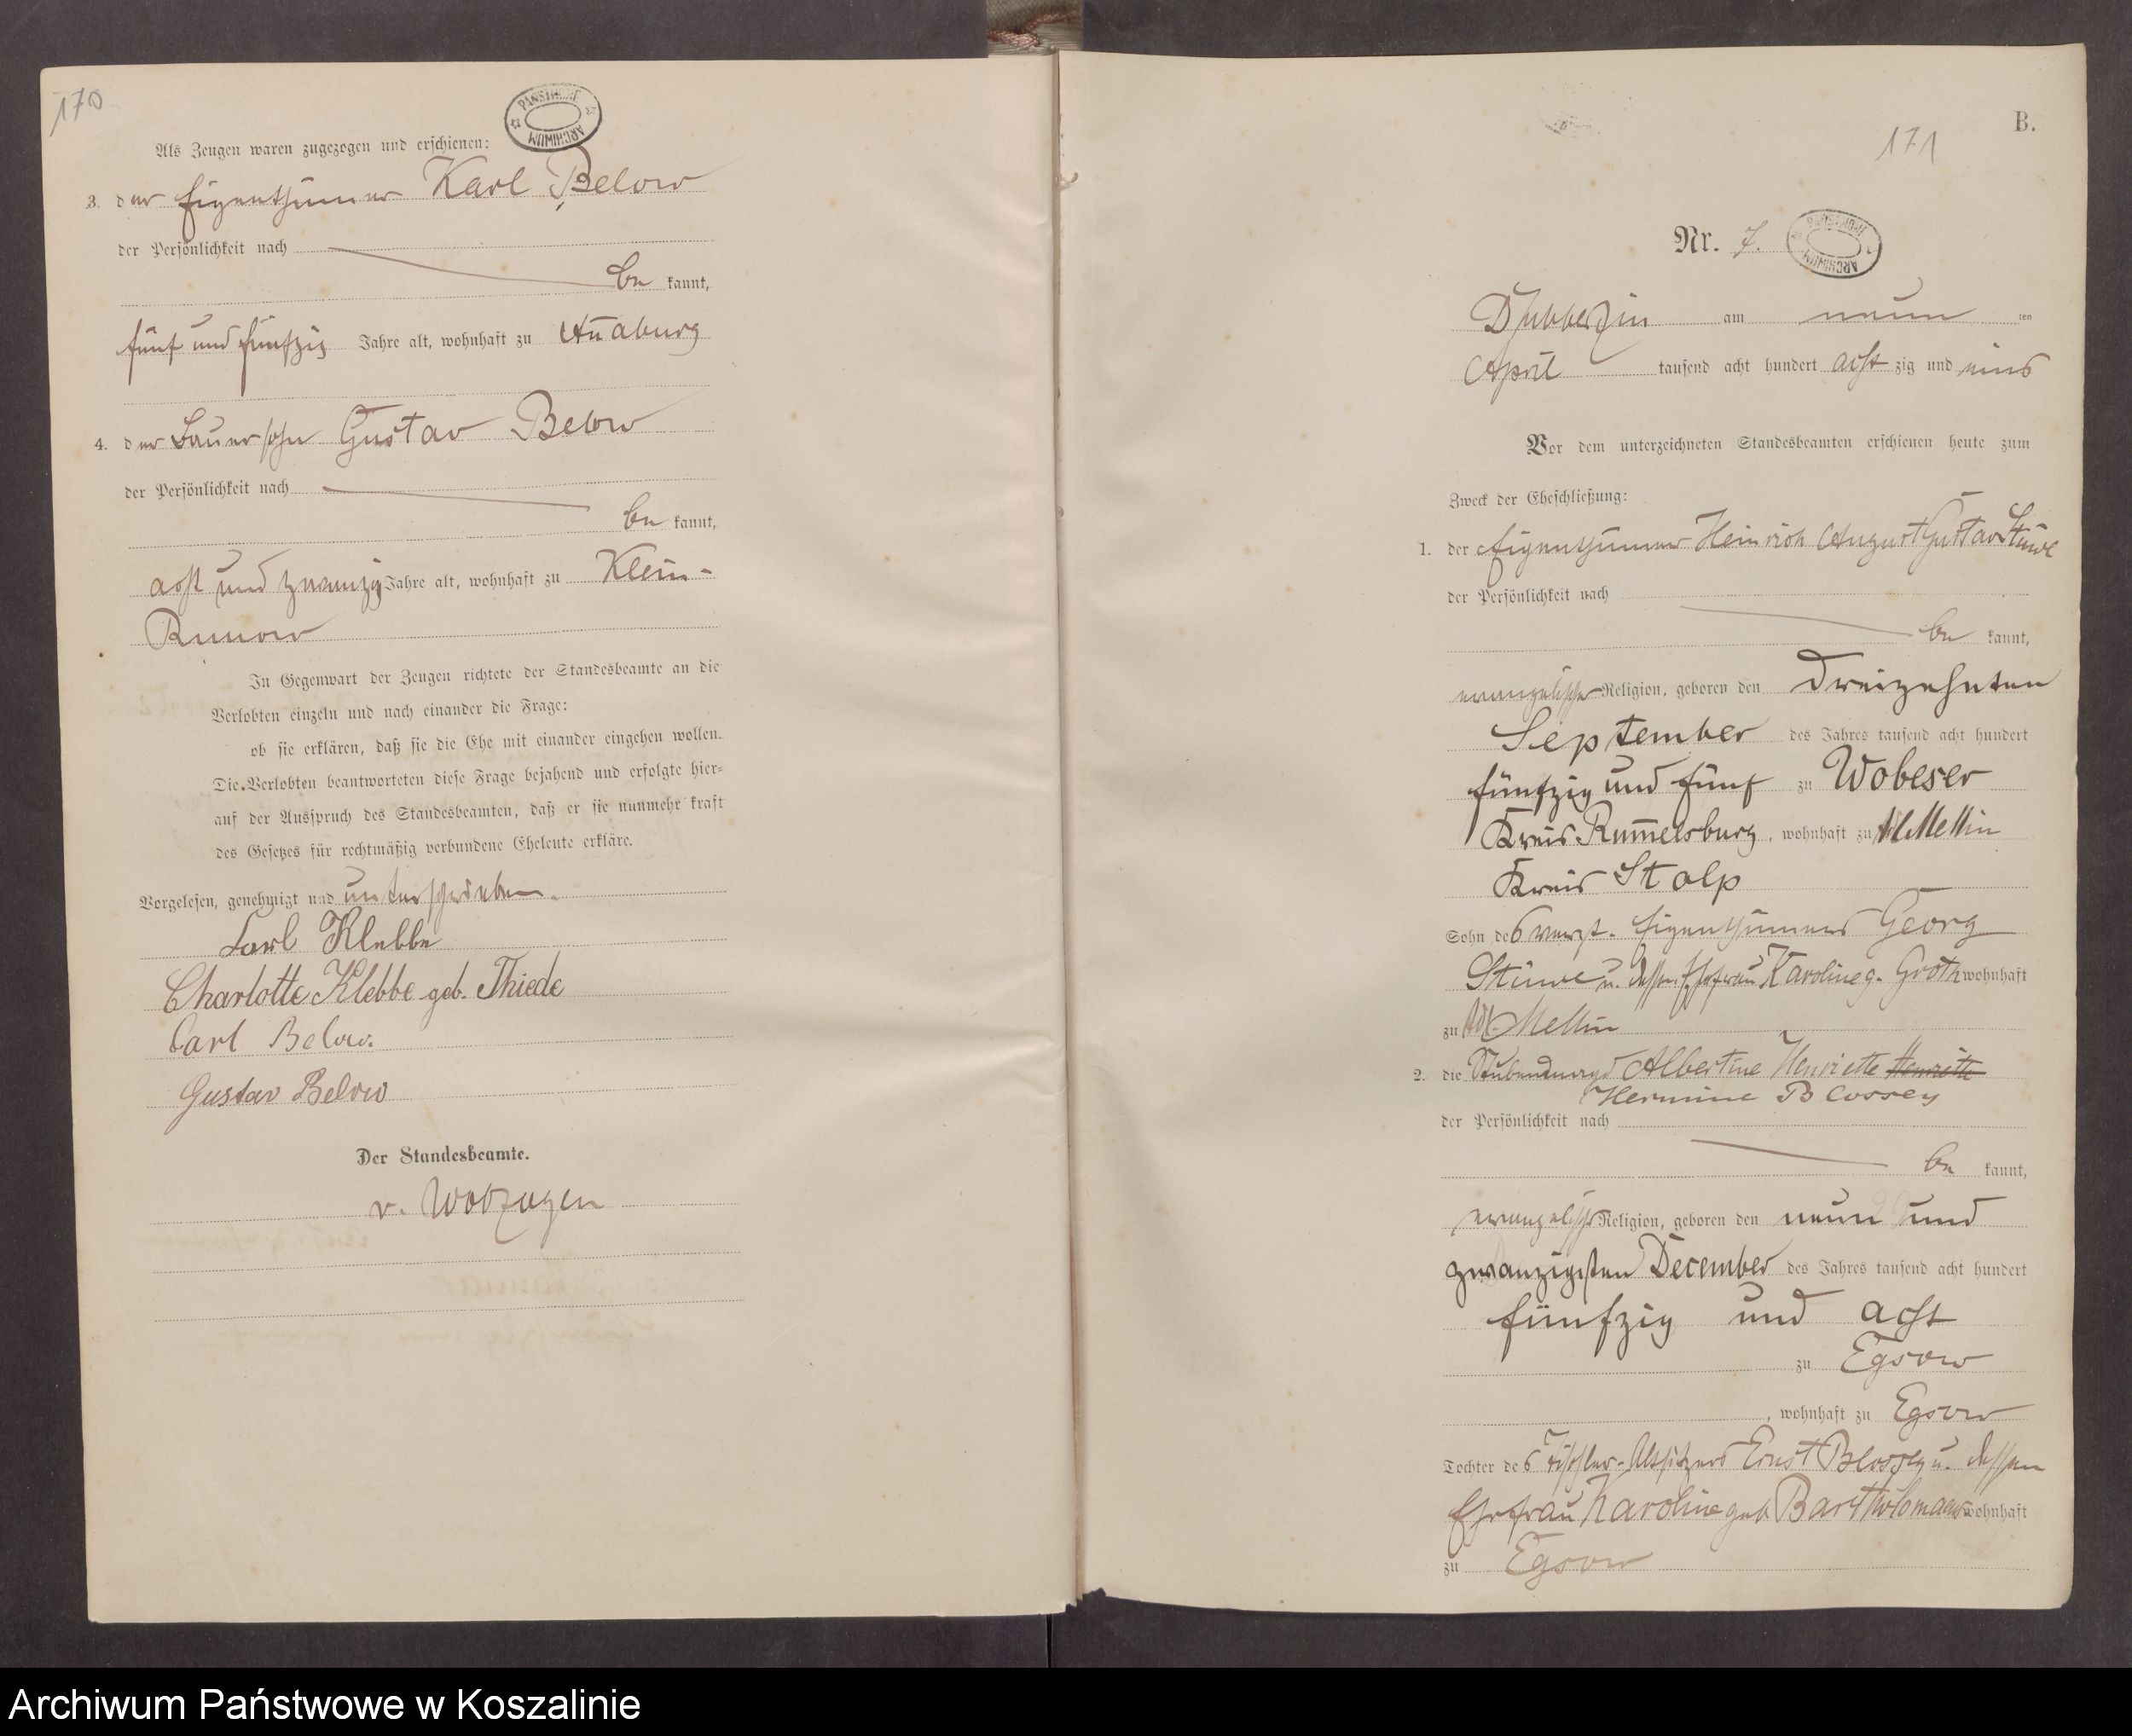 170
PAŃSTWOWE ARCHIWUM
Als Zeugen waren zugezogen und erschienen:
3. der Eigenthümer Karl Below
der Persönlichkeit nach
be kannt,
fünf und fünfzig Jahre alt, wohnhaft zu Annaburg
4. der Bauersohn Gustav Below
der Persönlichkeit nach
be kannt,
acht und zwanzig Jahre alt, wohnhaft zu Klein-
Runow
In Gegenwart der Zeugen richtete der Standesbeamte an die
Verlobten einzeln und nach einander die Frage:
ob sie erklären, daß sie die Ehe mit einander eingehen wollen.
Die Verlobten beantworteten diese Frage bejahend und erfolgte hier-
auf der Ausspruch des Standesbeamten, daß er sie nunmehr kraft
des Gesetzes für rechtmäßig verbundene Eheleute erkläre.
Vorgelesen, genehmigt und unterschrieben.
Carl Klebbe
Charlotte Klebbe geb. Thiede
Carl Below.
Gustav Below
Der Standesbeamte.
v. Wobeser
B.
171
Nr. 7.
Dzubberzin am neun ten
April tausend acht hundert acht zig und eins
Vor dem unterzeichneten Standesbeamten erschienen heute zum
Zweck der Eheschließung:
1. der Eigenthümer Heinrich August Gustav Stüwe
der Persönlichkeit nach
be kannt,
evangelischer Religion, geboren den dreizehnten
September des Jahres tausend acht hundert
fünfzig und fünf zu Wobeser
Kreis Rummelsburg, wohnhaft zu Adl. Mellin
Kreis Stolp
Sohn des verst. Eigenthümers Georg
Stüwe u. dessen Ehefrau Karoline g. Groth wohnhaft
zu Adl. Mellin
2. die Stubenmagd Albertine Henriette Henriette
Hermine Blossey
der Persönlichkeit nach
be kannt,
evangelischer Religion, geboren den neun und
zwanzigsten December des Jahres tausend acht hundert
fünfzig und acht
zu Egsow
, wohnhaft zu Egsow
Tochter des Tischler-Altsitzers Ernst Blossey u. dessen
Ehefrau Karoline geb. Bartholomaeus wohnhaft
zu Egsow
Archiwum Państwowe w Koszalinie